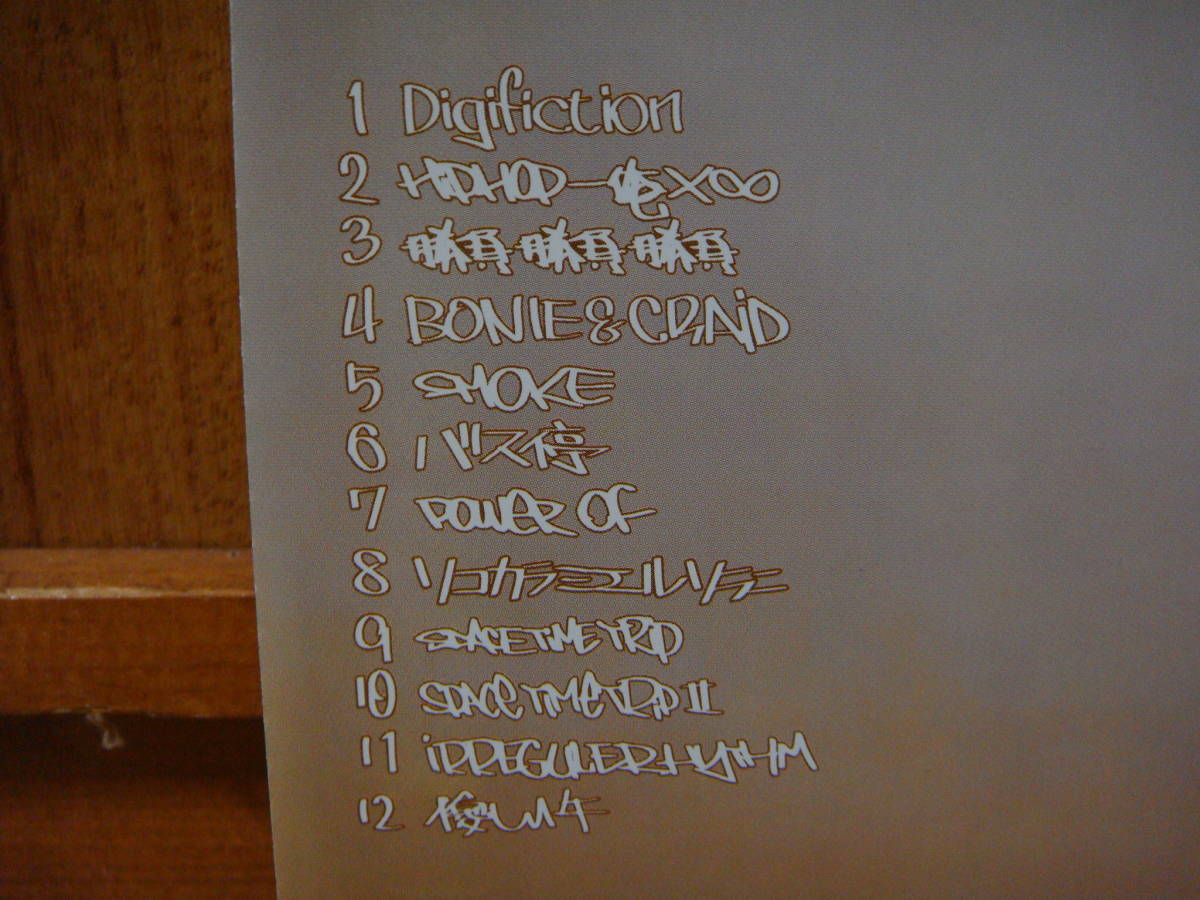 1 Digifiction
2 HIPHOP一途×∞
3 勝負 勝負 勝負
4 BONIE & CRAiD
5 SMOKE
6 バス停
7 POWER OF
8 ソコカラミエルソラニ
9 SPACE TiME TRIP
10 SPACE TiME TRiP II
11 iRREGULER RHYTHM
12 優しい